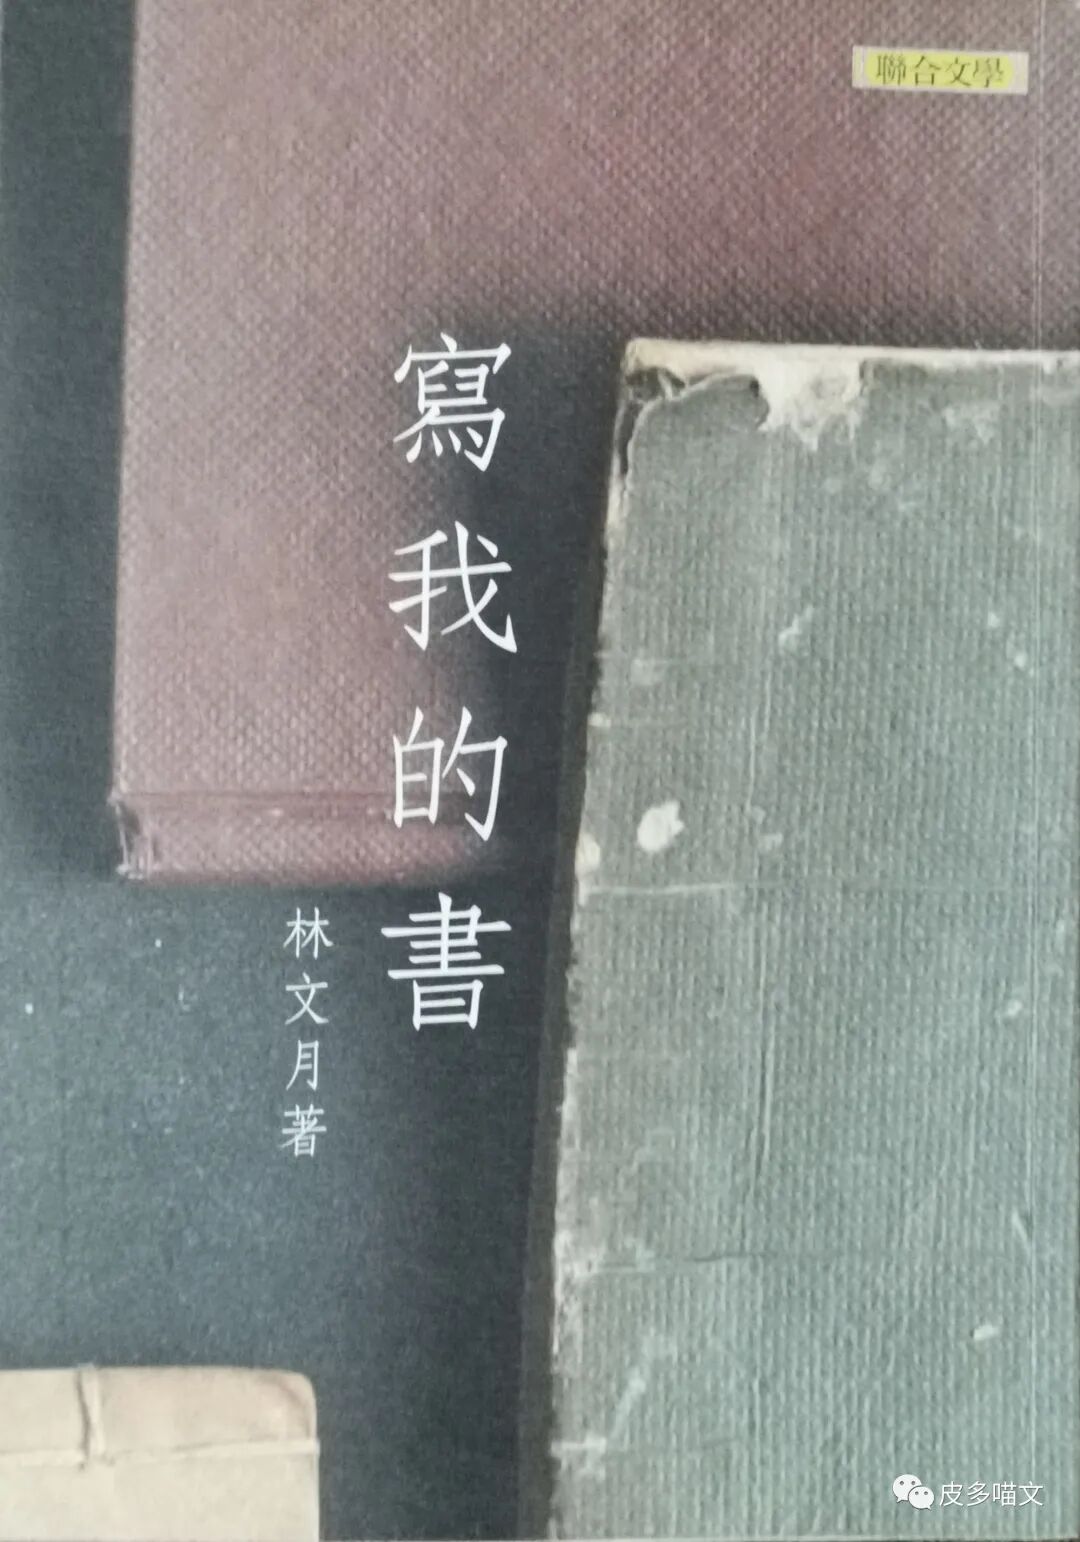 聯合文學
寫我的書
林文月著
皮多喵文